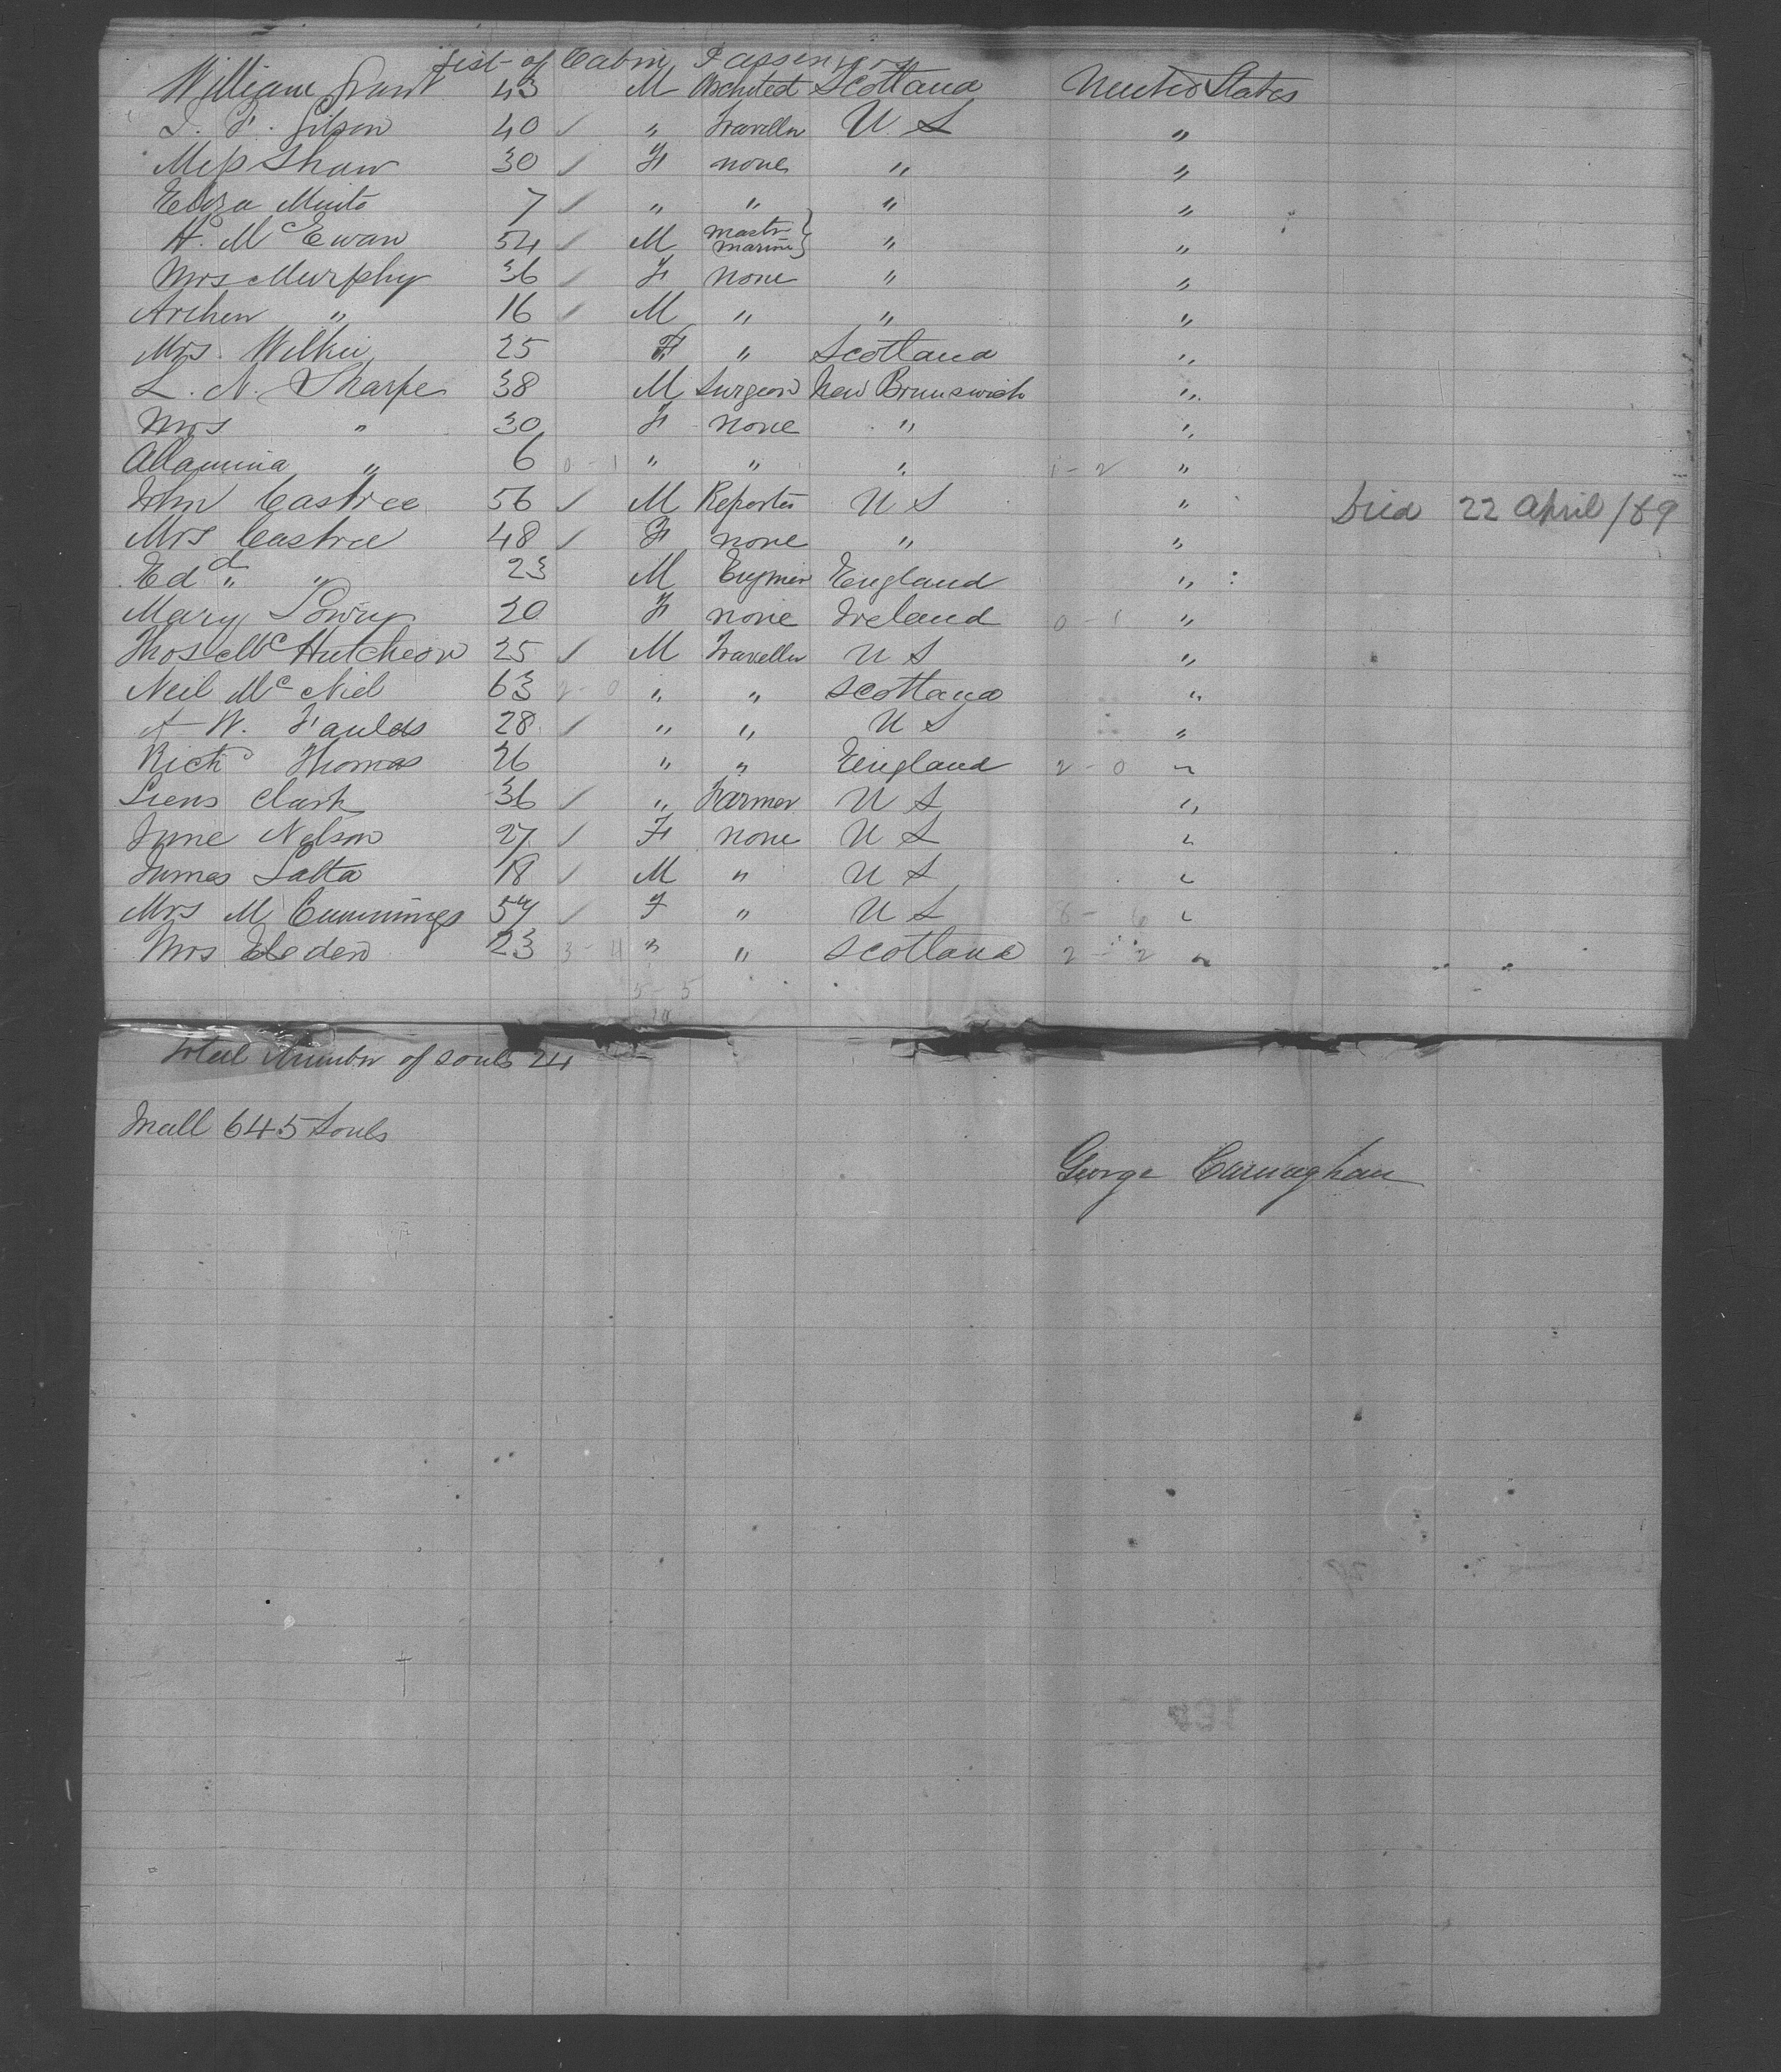 List of Cabin Passengers
William Grant 43 M Architect Scotland United States
J. F. Gibson 40 ✓ " Traveller U S "
Miss Shaw 30 ✓ F none " "
Eliza Minto 7 ✓ " " " "
H. McEwan 54 ✓ M Master Marine } " "
Mrs Murphy 36 ✓ F none " "
Archer " 16 ✓ M " " "
Mrs. Wilkie 25 F " Scotland "
L. N. Sharpe 38 M Surgeon New Brunswick "
Mrs " 30 F none " "
Allamina " 6 0-1 " " " 1-2 "
John Castree 56 ✓ M Reporter U S " Died 22 April /89
Mrs Castree 48 ✓ F none " "
Edd " " 23 M Engineer England "
Mary Lowry 20 F none Ireland 0-1 "
Thos McHutcheon 25 ✓ M Traveller U S "
Neil McNiel 63 2-0 " " Scotland "
W. Faulds 28 ✓ " " U S "
Richd Thomas 26 " " England 2-0 "
Clark 36 ✓ " Farmer U S "
Nelson 27 ✓ F none U S "
James Latta 18 ✓ M " U S "
Mrs M Cummings 54 ✓ F " U S 6-6 "
Mrs 23 3-4 " " Scotland 2-2 "
5-5
10
Total Number of souls 24
In all 645 Souls
George Cunningham